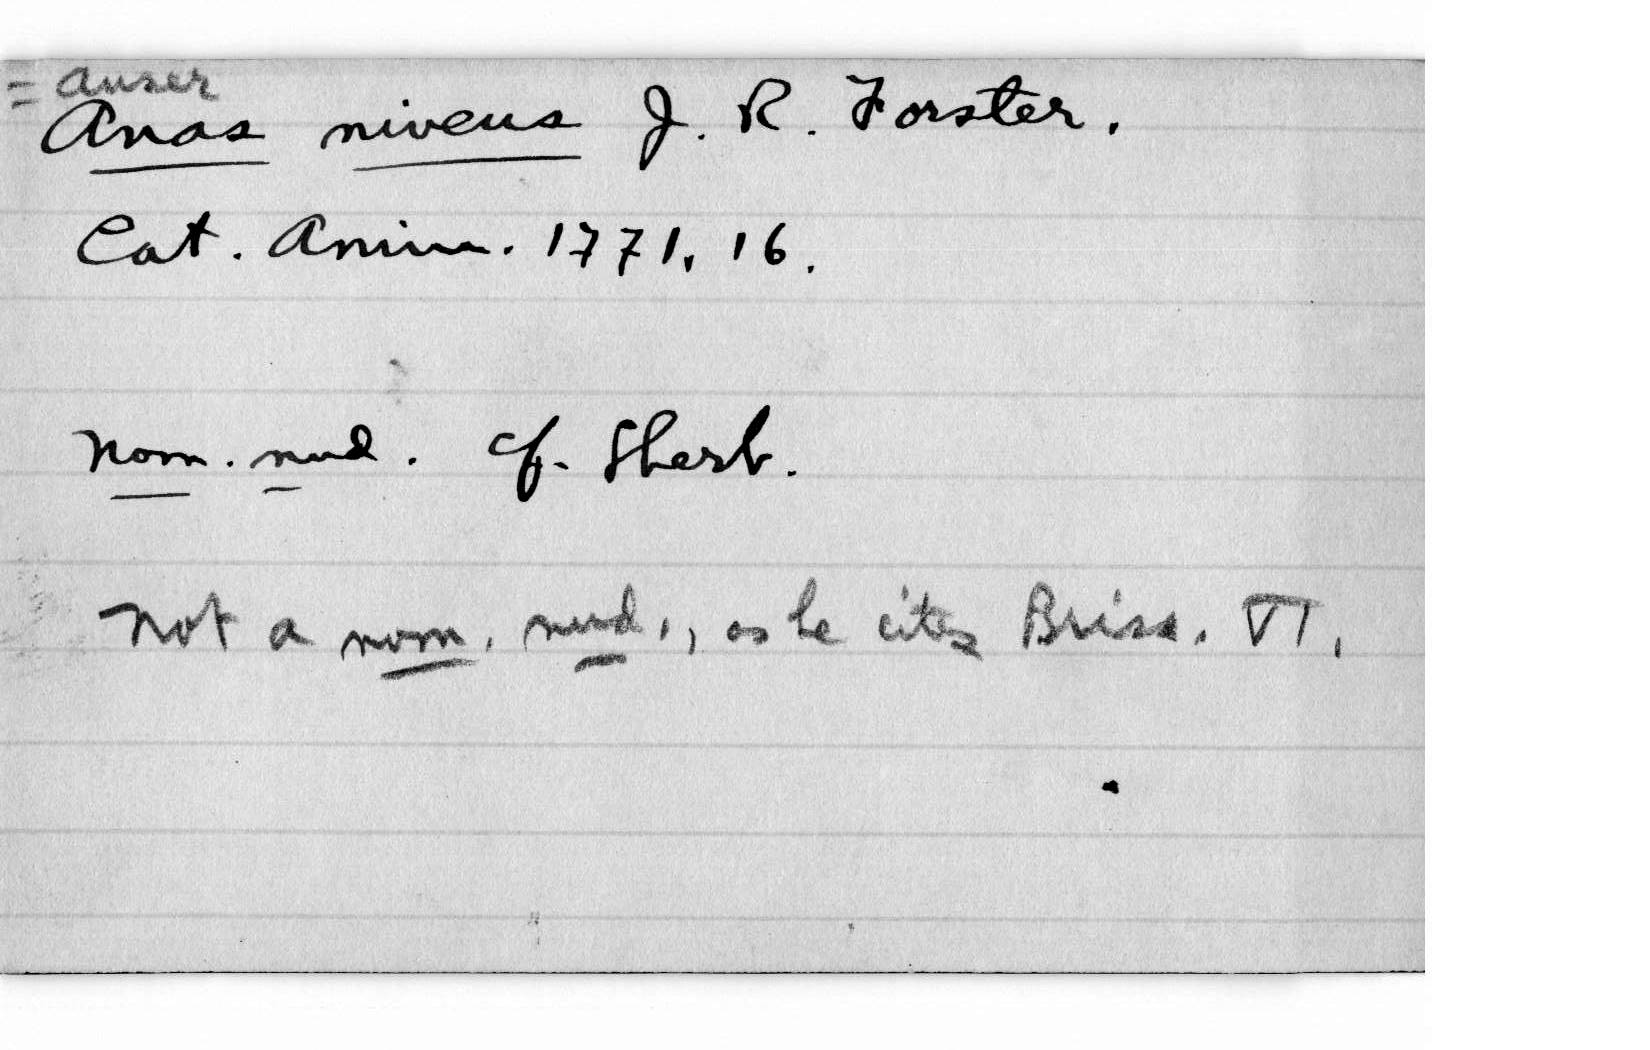 = anser
Anas niveus J. R. Forster.
Cat. Anim. 1771, 16.
Nom. nud. cf. Sherb.
Not a nom. nud., as he cites Briss. VI.